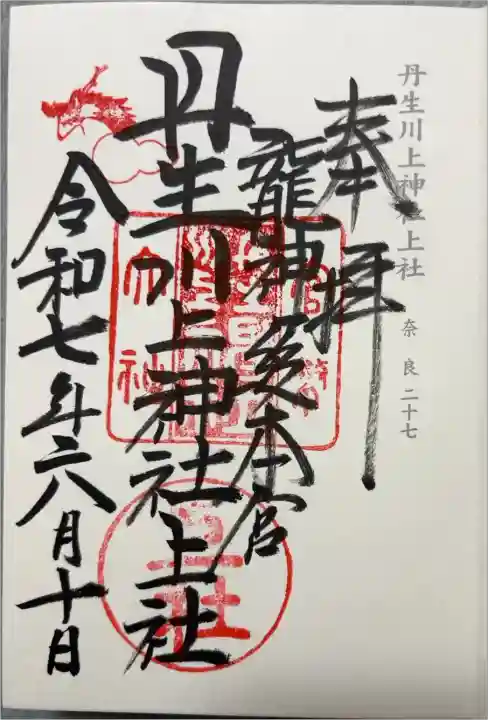 丹生川上神社上社 奈良 二十七
奉拝
龍神総本宮
丹生川上神社上社
令和七年六月十日
官幣
大社
上社